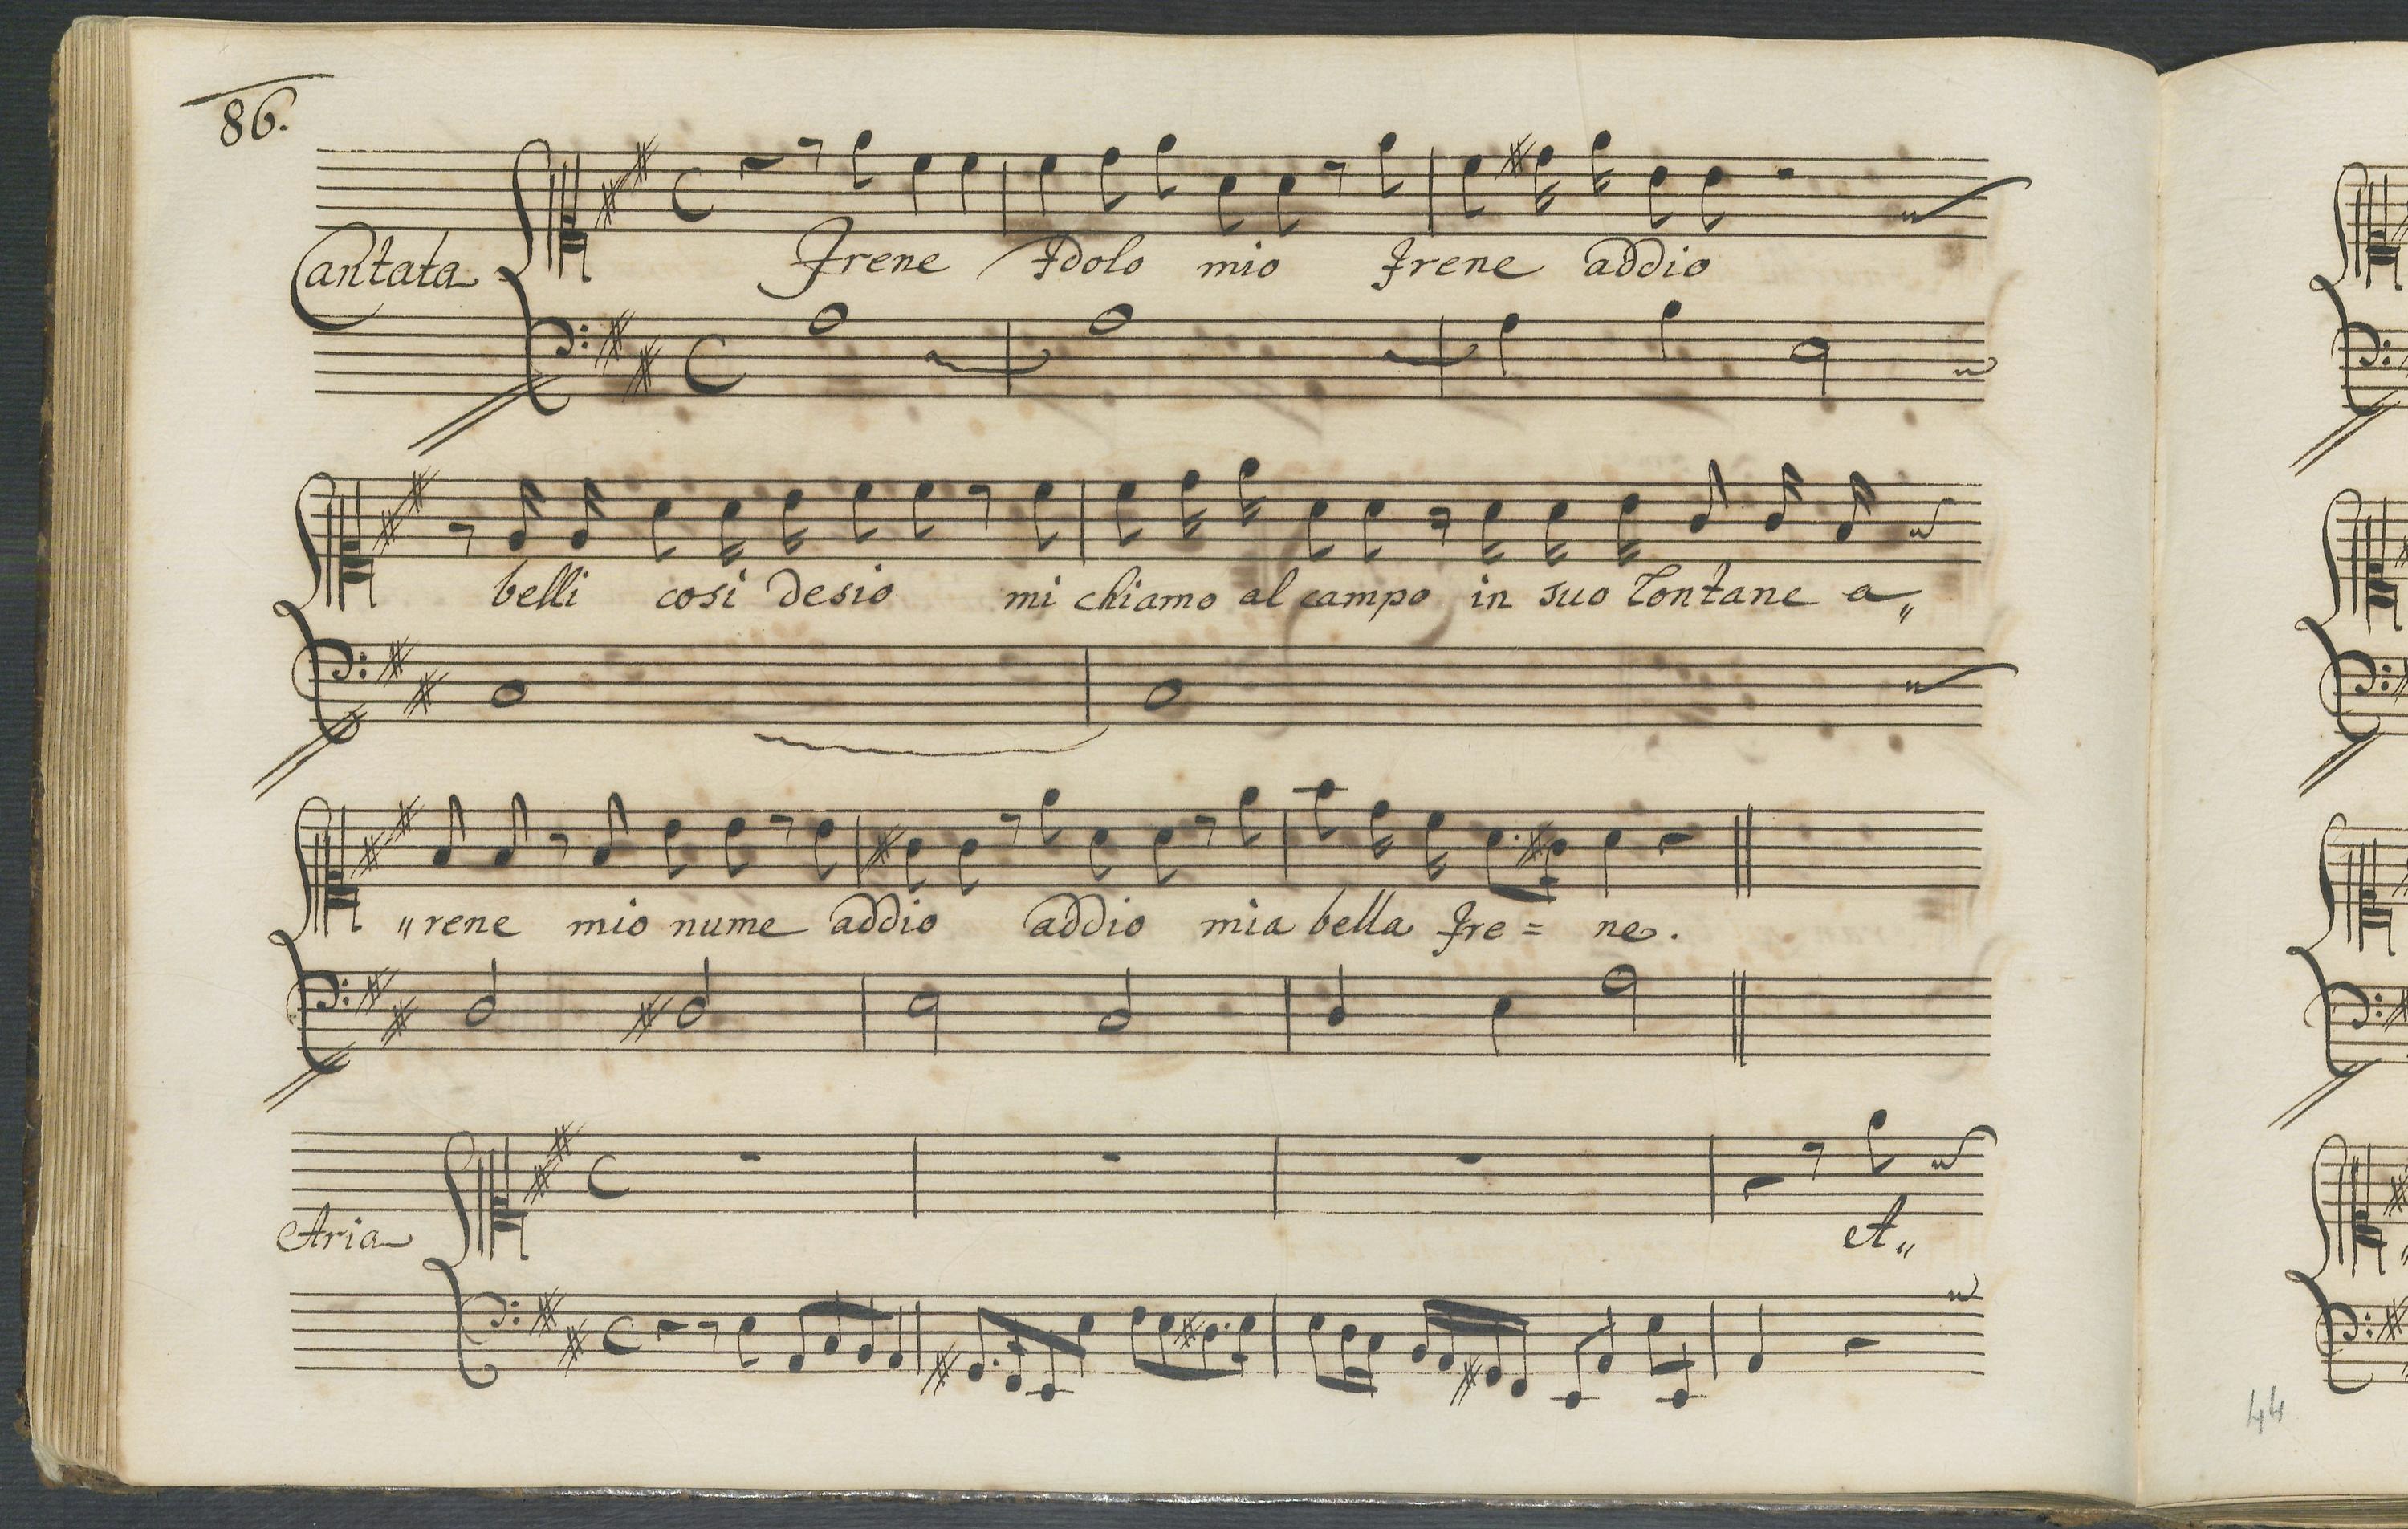 86.
Cantata
Irene Idolo mio Irene addio
belli cosi desio mi chiamo al campo in suo lontane a„
„rene mio nume addio addio mia bella Ire = ne.
Aria
A„
44